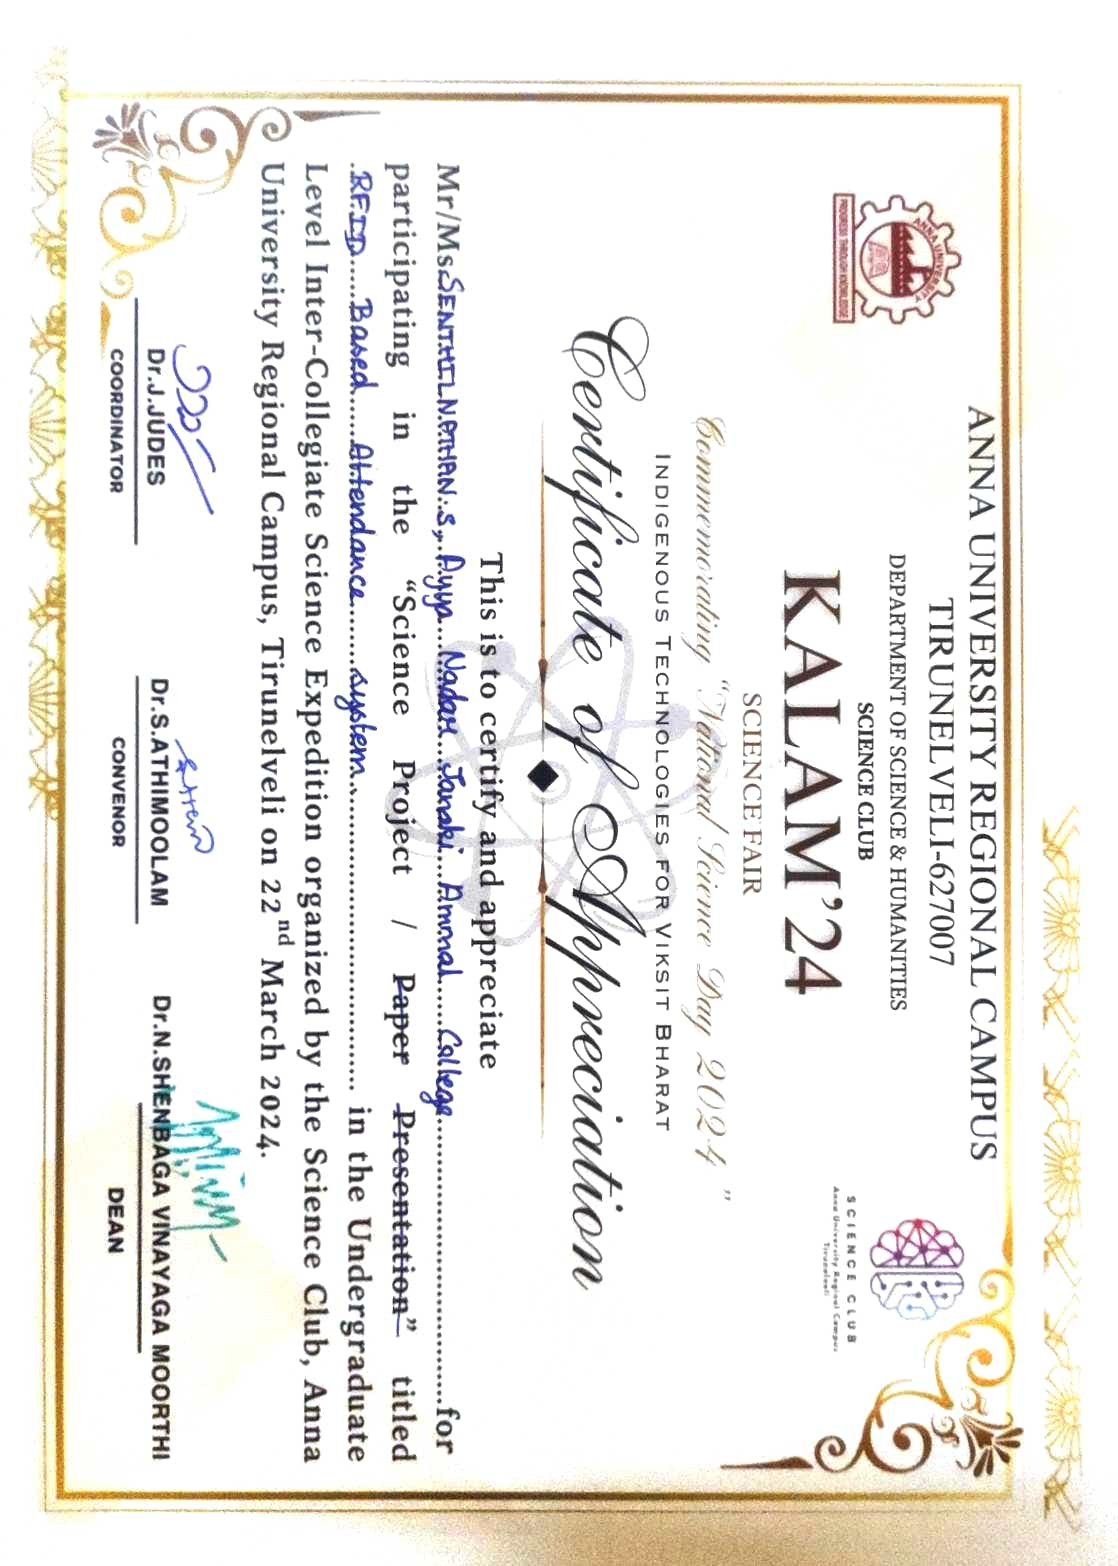 ANNA UNIVERSITY
PROGRESS THROUGH KNOWLEDGE
ANNA UNIVERSITY REGIONAL CAMPUS
TIRUNELVELI-627007
DEPARTMENT OF SCIENCE & HUMANITIES
SCIENCE CLUB
SCIENCE CLUB
Anna University Regional Campus
Tirunelveli
KALAM'24
SCIENCE FAIR
Commemorating "National Science Day 2024"
INDIGENOUS TECHNOLOGIES FOR VIKSIT BHARAT
Certificate of Appreciation
This is to certify and appreciate
Mr/Ms SENTHILNATHAN.S, Ayya Nadar Janaki Ammal College for
participating in the "Science Project / Paper Presentation" titled
RFID Based Attendance system in the Undergraduate
Level Inter-Collegiate Science Expedition organized by the Science Club, Anna
University Regional Campus, Tirunelveli on 22nd March 2024.
Dr.J.JUDES
COORDINATOR
Dr.S.ATHIMOOLAM
CONVENOR
Dr.N.SHENBAGA VINAYAGA MOORTHI
DEAN